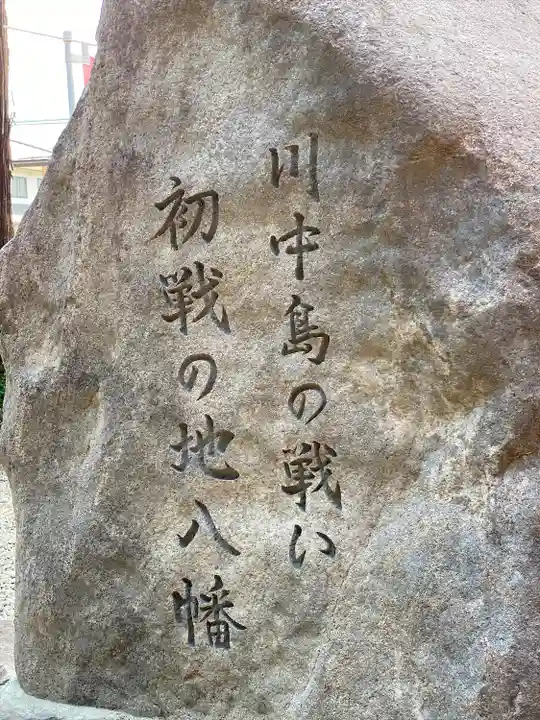 川中島の戦い
初戦の地八幡